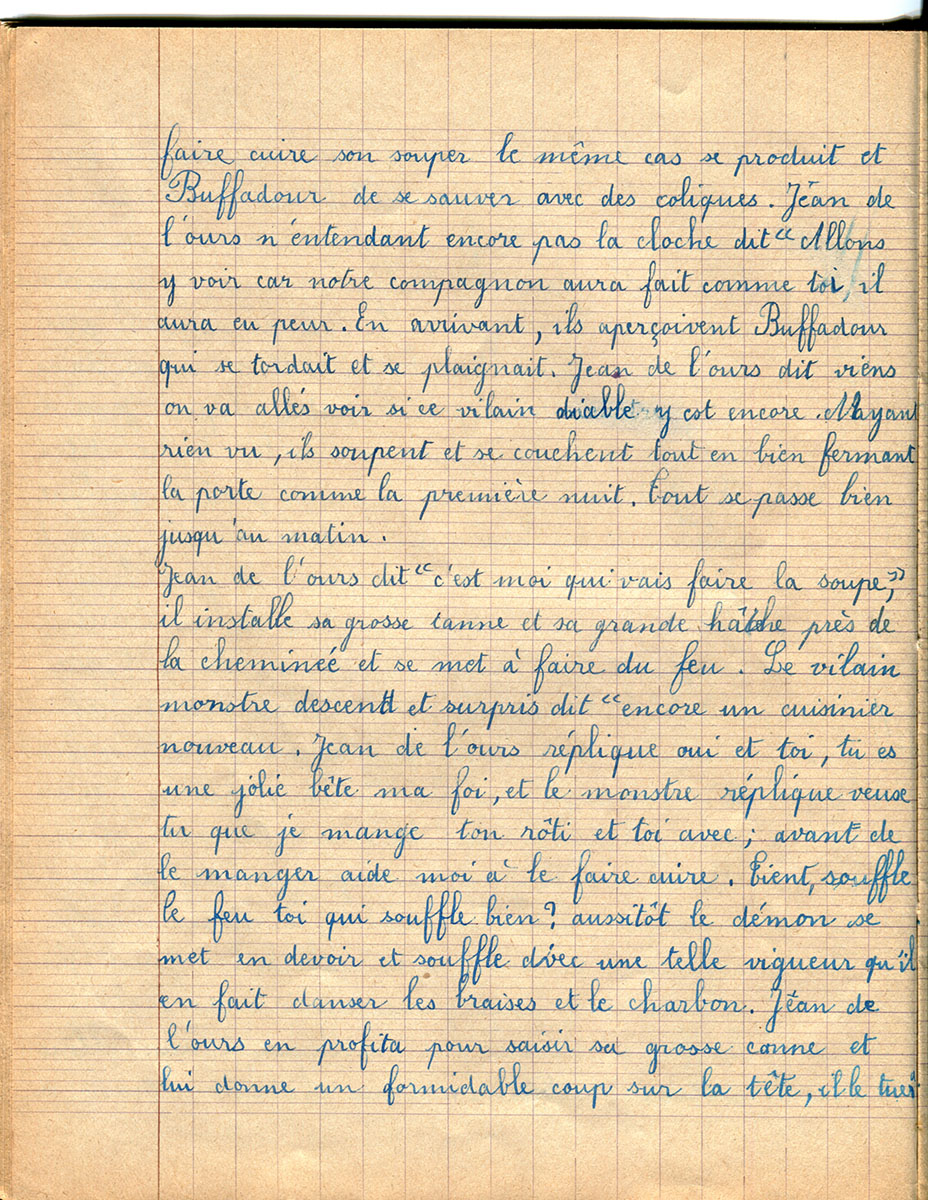 faire cuire son souper le même cas se produit et
Buffadour de se sauver avec des coliques. Jean de
l'ours n'entendant encore pas la cloche dit “Allons
y voir car notre compagnon aura fait comme toi, il
aura eu peur. En arrivant, ils aperçoivent Buffadour
qui se tordait et se plaignait. Jean de l'ours dit viens
on va allés voir si ce vilain diable y est encore. N'ayant
rien vu, ils soupent et se couchent tout en bien fermant
la porte comme la première nuit. Tout se passe bien
jusqu'au matin.
Jean de l'ours dit “c'est moi qui vais faire la soupe,”
il installe sa grosse canne et sa grande hâche près de
la cheminée et se met à faire du feu. Le vilain
monstre descend et surpris dit “encore un cuisinier
nouveau. Jean de l'ours réplique oui et toi, tu es
une jolie bête ma foi, et le monstre réplique veuse
tu que je mange ton rôti et toi avec; avant de
le manger aide moi à le faire cuire. Tient, souffle
le feu toi qui souffle bien? aussitôt le démon se
met en devoir et souffle avec une telle vigueur qu'il
en fait danser les braises et le charbon. Jean de
l'ours en profita pour saisir sa grosse canne et
lui donne un formidable coup sur la tête, il le